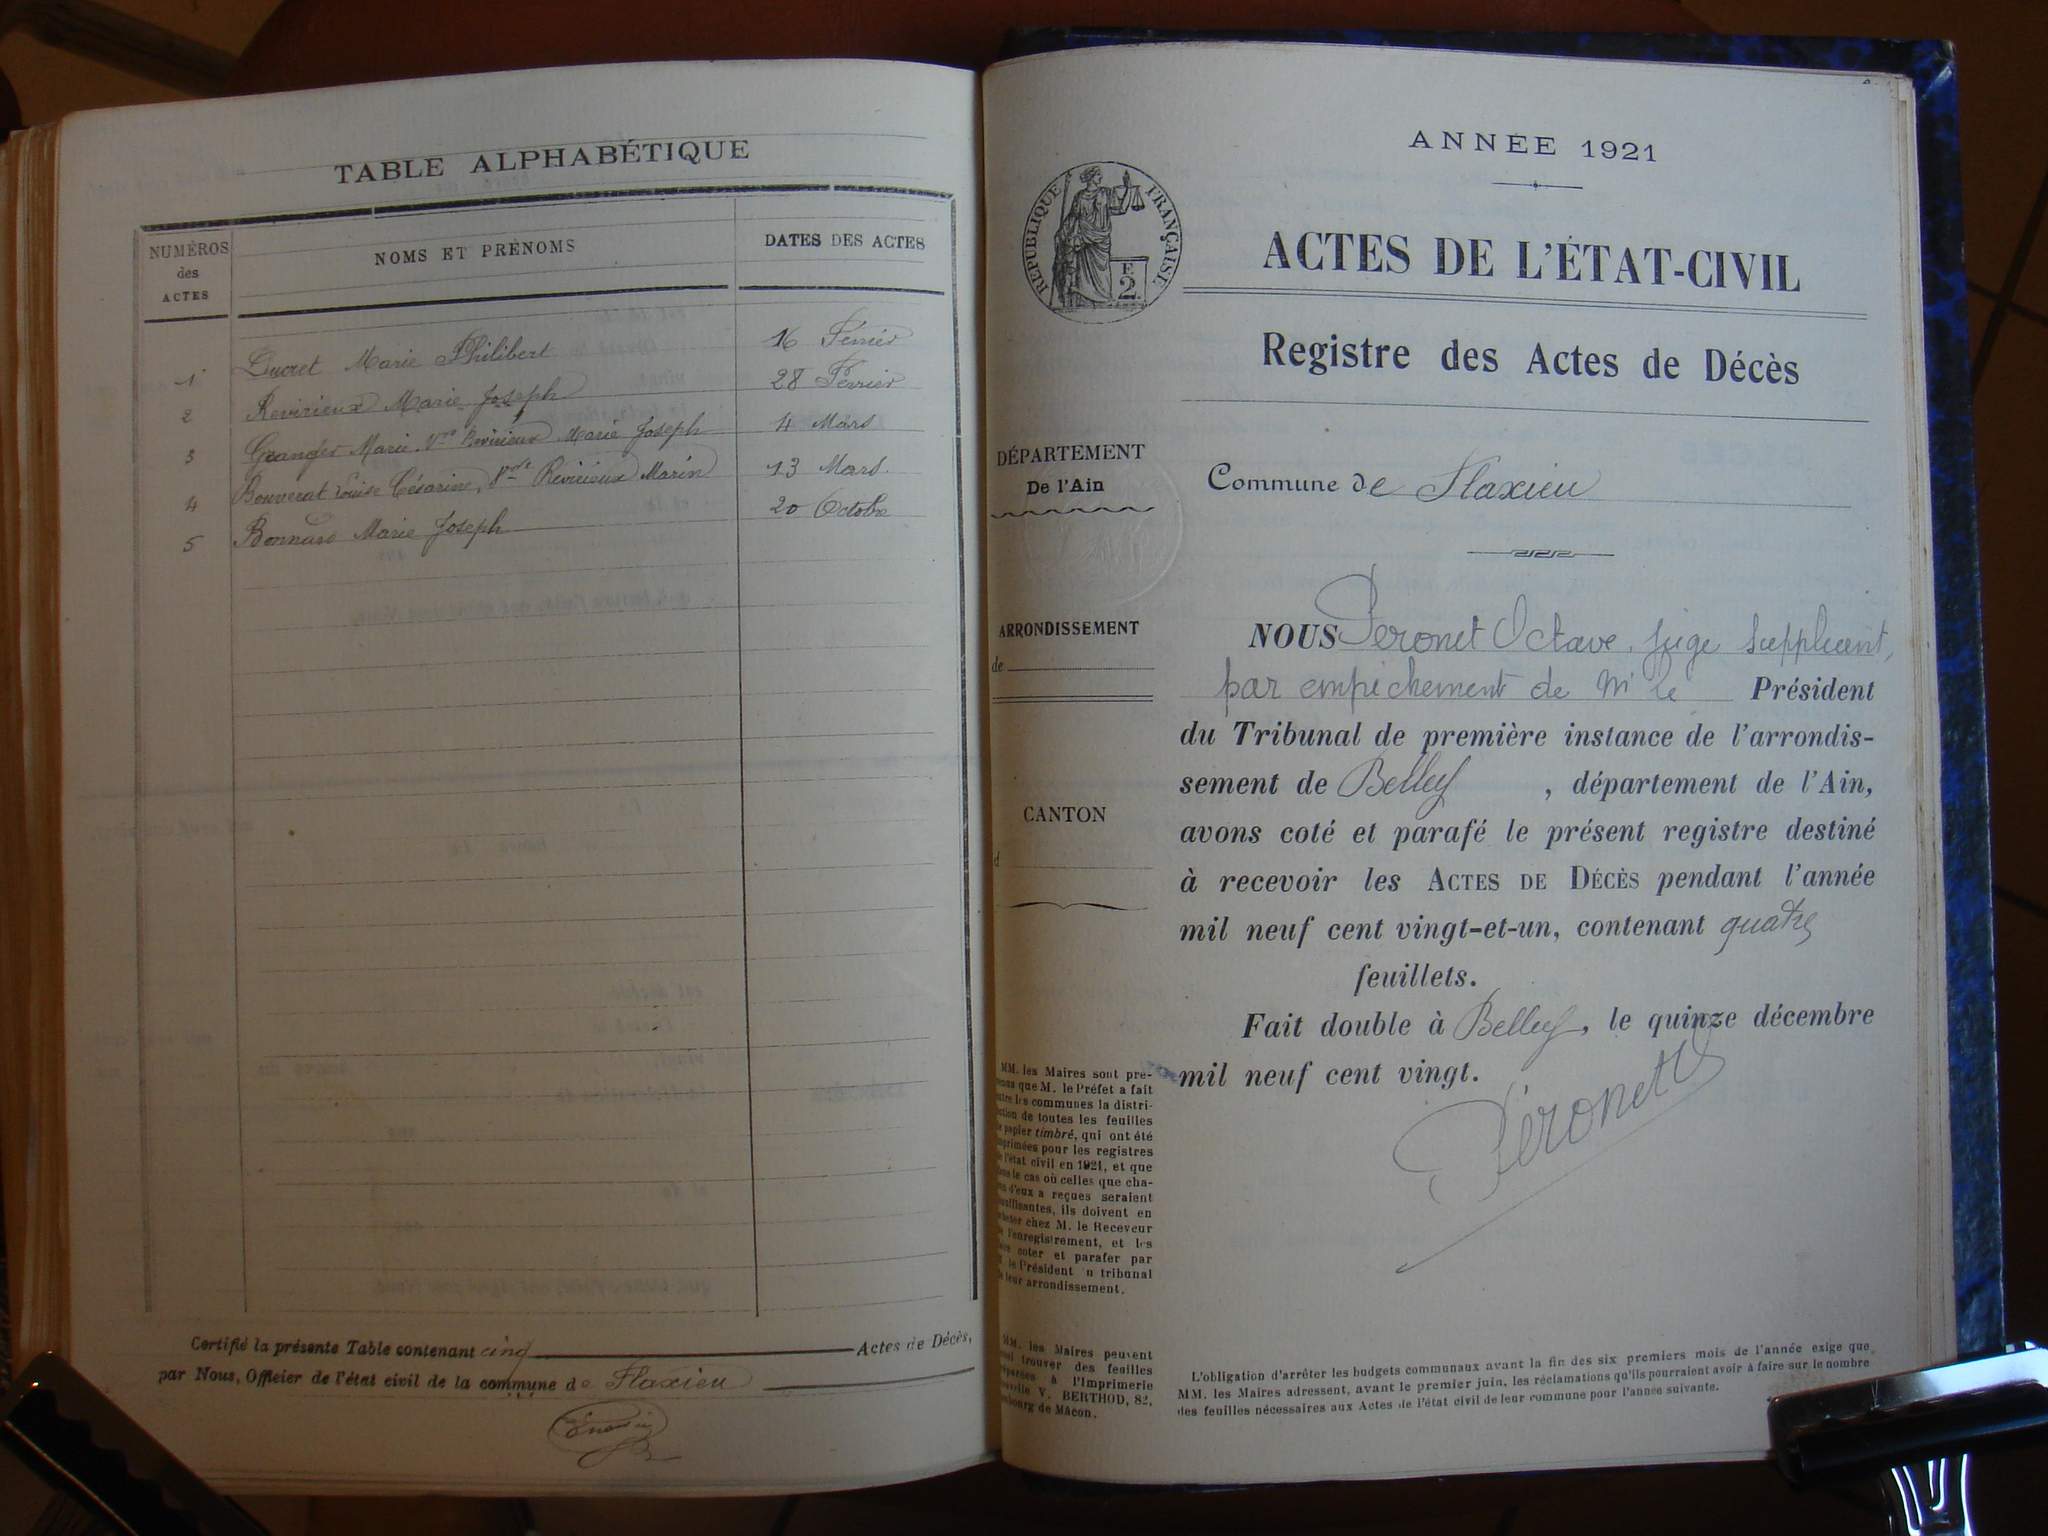 TABLE ALPHABÉTIQUE
NUMÉROS des ACTES
NOMS ET PRÉNOMS
DATES DES ACTES
1 Ducret Marie Philibert 16 Février
2 Revirieux Marie Joseph 28 Février
3 Granger Marie Vve Revirieux Marie Joseph 4 Mars
4 Bouverat Louise Césarine, Revirieux Marin 13 Mars
5 Bonnard Marie Joseph 20 Octobre
Certifié la présente Table contenant cinq Actes de Décès,
par Nous, Officier de l'état civil de la commune de Flaxieu
ANNÉE 1921
RÉPUBLIQUE FRANÇAISE
E
2
ACTES DE L'ÉTAT-CIVIL
Registre des Actes de Décès
DÉPARTEMENT
De l'Ain
Commune de Flaxieu
ARRONDISSEMENT
de
CANTON
d
NOUS Peronet Octave, juge suppléant,
par empêchement de Mr le Président
du Tribunal de première instance de l'arrondis-
sement de Belley, département de l'Ain,
avons coté et parafé le présent registre destiné
à recevoir les ACTES DE DÉCÈS pendant l'année
mil neuf cent vingt-et-un, contenant quatre
feuillets.
Fait double à Belley, le quinze décembre
mil neuf cent vingt.
Péronet
MM. les Maires sont pré-
que M. le Préfet a fait
les communes la distri-
de toutes les feuilles
papier timbré, qui ont été
pour les registres
l'état civil en 1921, et que
le cas où celles que cha-
d'eux a reçues seraient
ils doivent en
chez M. le Receveur
l'enregistrement, et les
coter et parafer par
le Président tribunal
leur arrondissement.
MM. les Maires peuvent
trouver des feuilles
à l'Imprimerie
V. BERTHOD, 82,
de Mâcon.
L'obligation d'arrêter les budgets communaux avant la fin des six premiers mois de l'année exige que
MM. les Maires adressent, avant le premier juin, les réclamations qu'ils pourraient avoir à faire sur le nombre
des feuilles nécessaires aux Actes de l'état civil de leur commune pour l'année suivante.